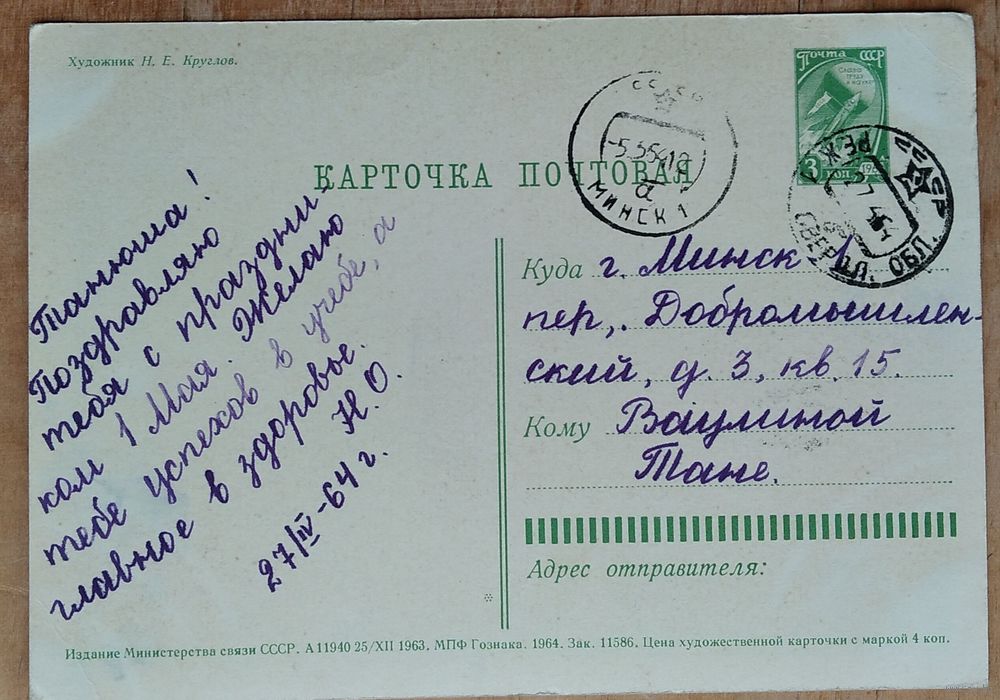 Художник Н. Е. Круглов.
Почта СССР
Слава
труду
и науке
3 коп.
КАРТОЧКА ПОЧТОВАЯ
МИНСК 1
а
РЕЖ
СВЕРДЛ. ОБЛ.
Танюша!
Поздравляю
тебя с праздни-
ком 1 Мая. Желаю
тебе успехов в учебе, а
главное в здоровье.
Н. О.
27/IV-64 г.
Куда г. Минск-1
пер,. Добромышлен-
ский, д. 3, кв. 15.
Кому Ваулиной
Тане.
Адрес отправителя:
Издание Министерства связи СССР. А 11940 25/XII 1963. МПФ Гознака. 1964. Зак. 11586. Цена художественной карточки с маркой 4 коп.